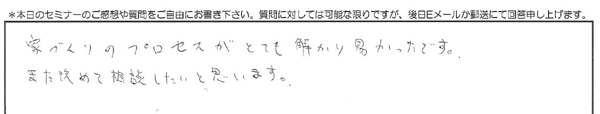 *本日のセミナーのご感想や質問をご自由にお書き下さい。質問に対しては可能な限りですが、後日Eメールか郵送にて回答申し上げます。
家づくりのプロセスがとても解かり易かったです。
また改めて相談したいと思います。